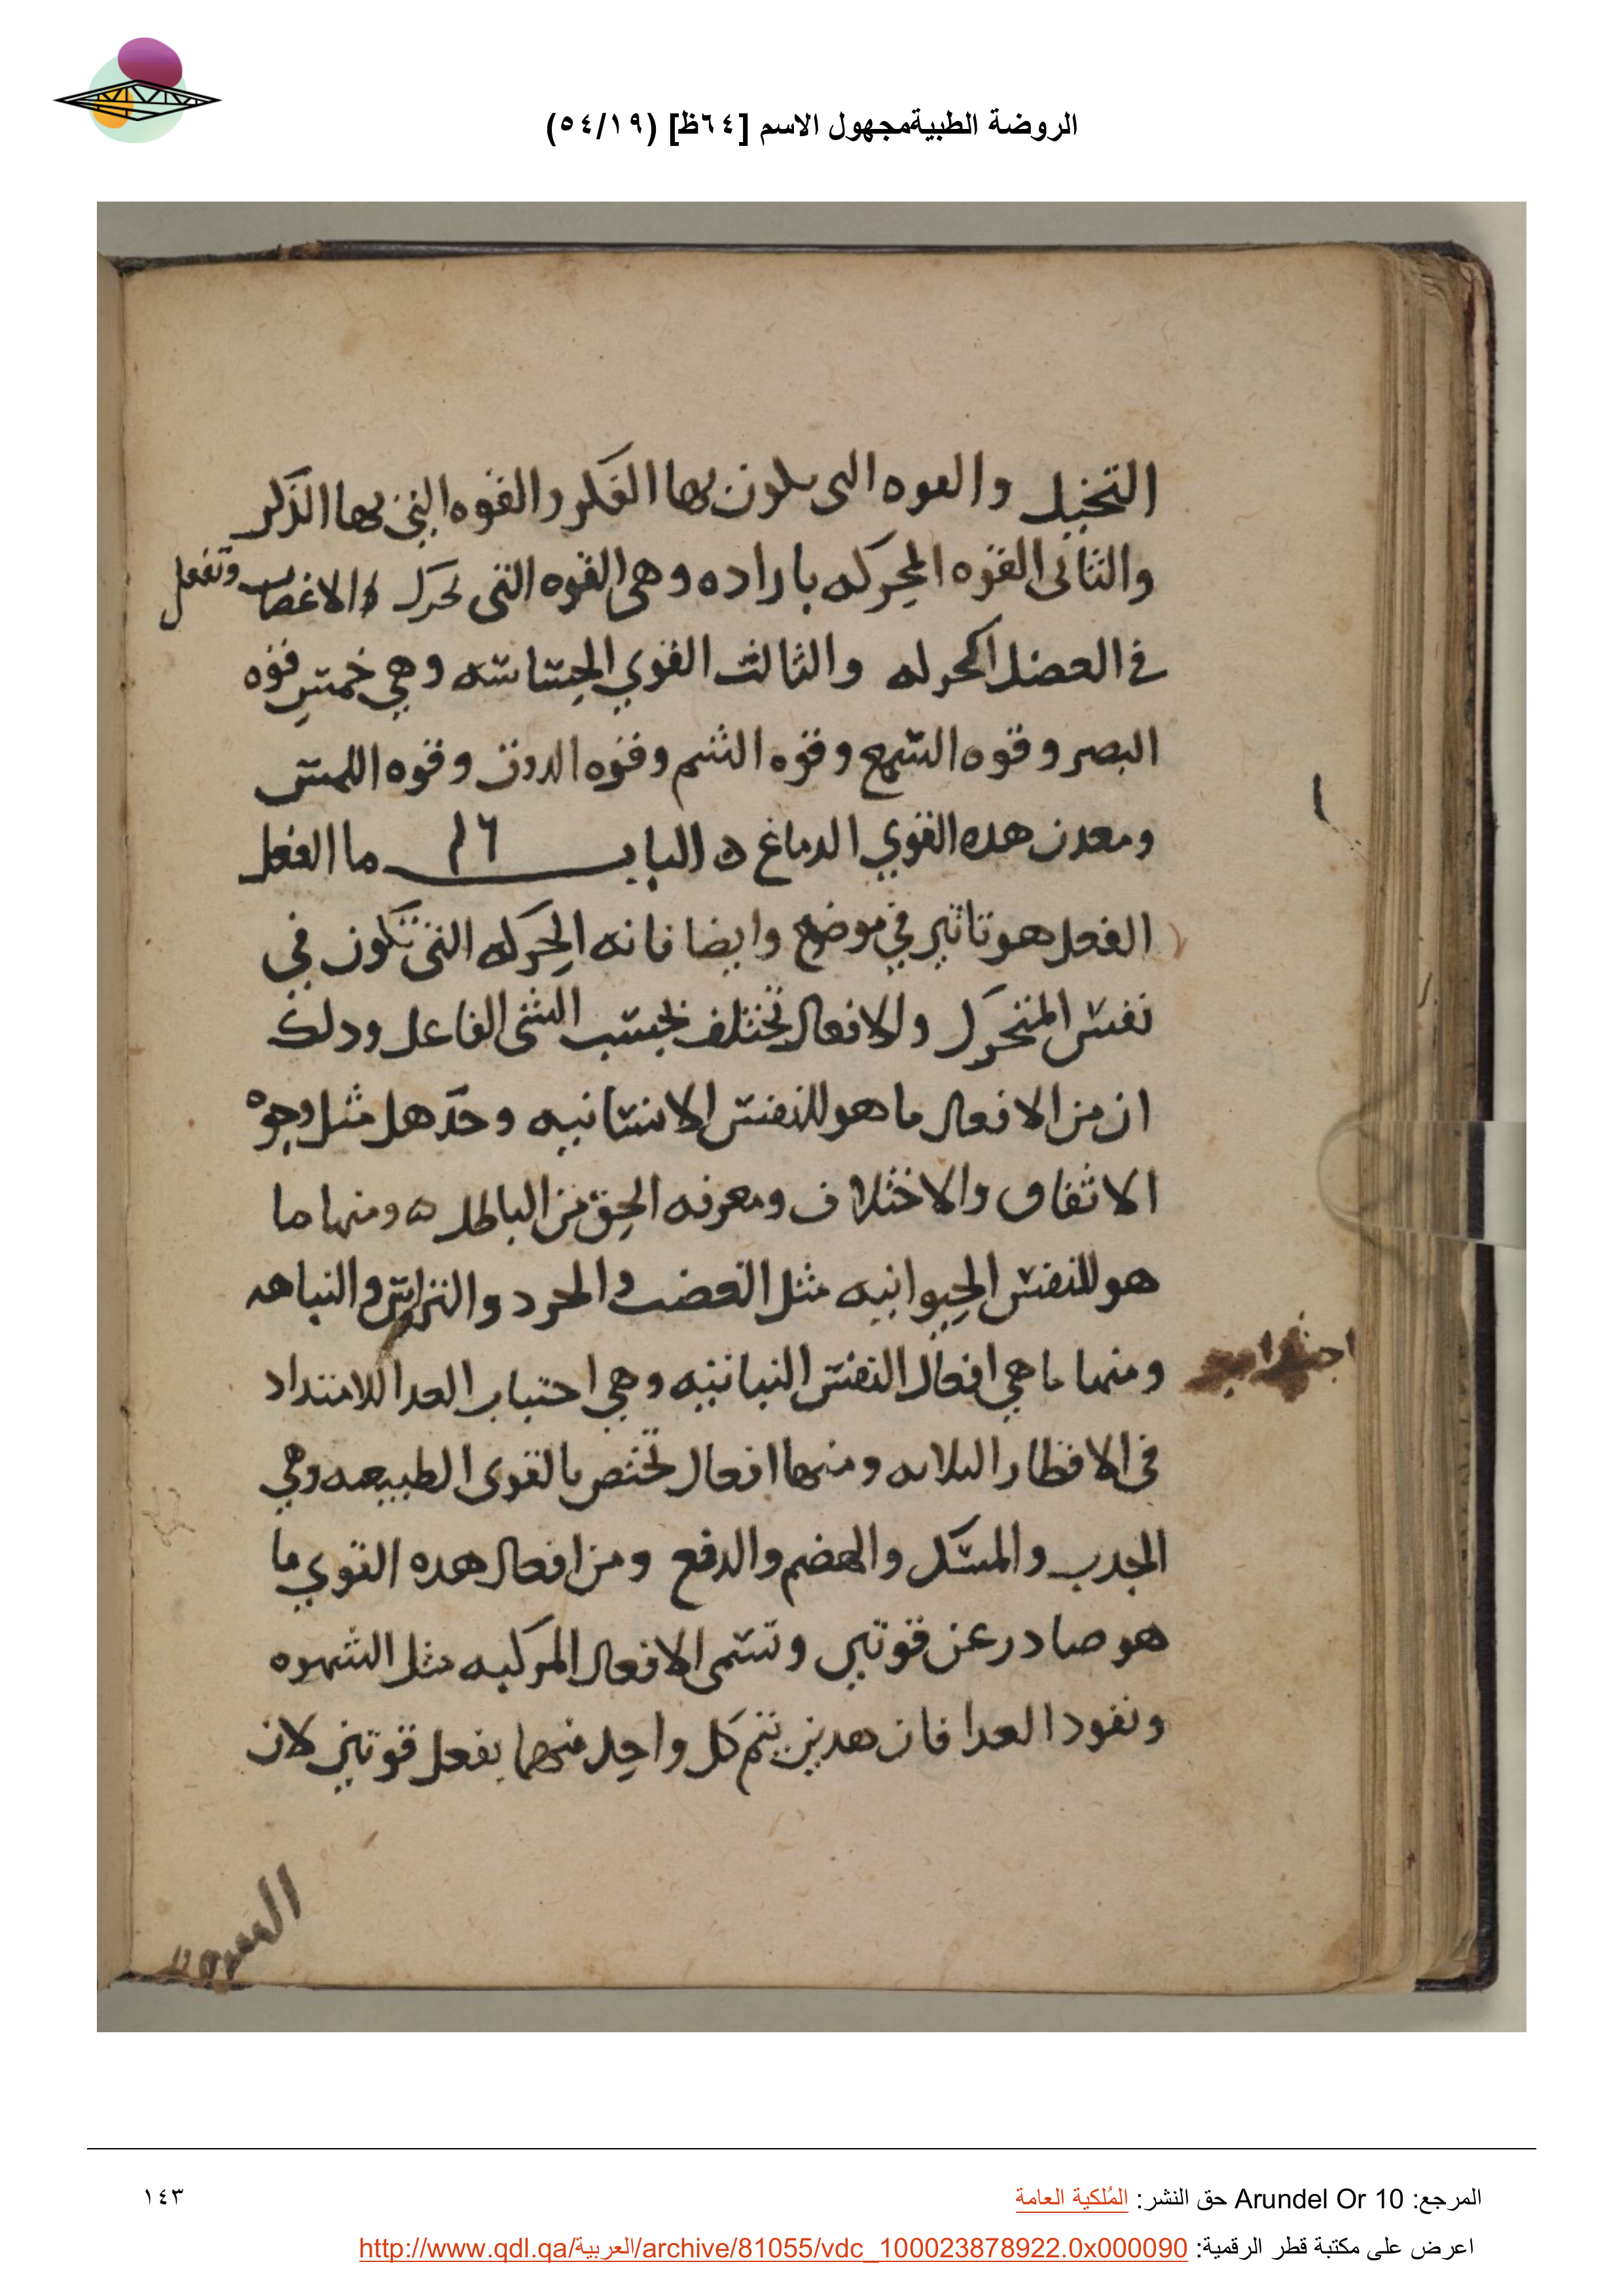 الروضة الطبيةمجهول الاسم [٦٤ظ] (٥٤/١٩)
التخيل والقوه التى يكون بها الفكر والقوه التي بها الذكر
والثانى القوه المحركه باراده وهى القوه التى تحرك الاعصاب وتفعل
في العضل الحركه والثالث القوي الحساسه وهي خمس قوه
البصر وقوه السمع وقوه الشم وقوه الدوق وقوه اللمس
ومعدن هده القوي الدماغ ه الباب ١٦ ما الفعل
الفعل هو تاثير في موضع وايضا فانه الحركه التى تكون في
نفس المتحرك والافعال تختلف بحسب الشى الفاعل ودلك
ان من الافعال ما هو للنفس الانسانيه وحدها مثل وجوه
الاتفاق والاختلاف ومعرفه الحق من الباطل ه ومنها ما
هو للنفس الحيوانيه مثل الغضب والحرد والترايس والنباهه
ومنها ما هي افعال النفس النباتيه وهي احتباب الغدا للامتداد
اجتداب
في الاقطار الثلاثه ومنها افعال تختص بالقوى الطبيعه وهي
الجدب والمسك والهضم والدفع ومن افعال هده القوي ما
هو صادر عن قوتين وتسمى الافعال المركبه مثل الشهوه
ونفود الغدا فان هدين يتم كل واحد منهما بفعل قوتين لان
الشهوه
المرجع: Arundel Or 10 حق النشر: المُلكية العامة
١٤٣
اعرض على مكتبة قطر الرقمية: http://www.qdl.qa/العربية/archive/81055/vdc_100023878922.0x000090